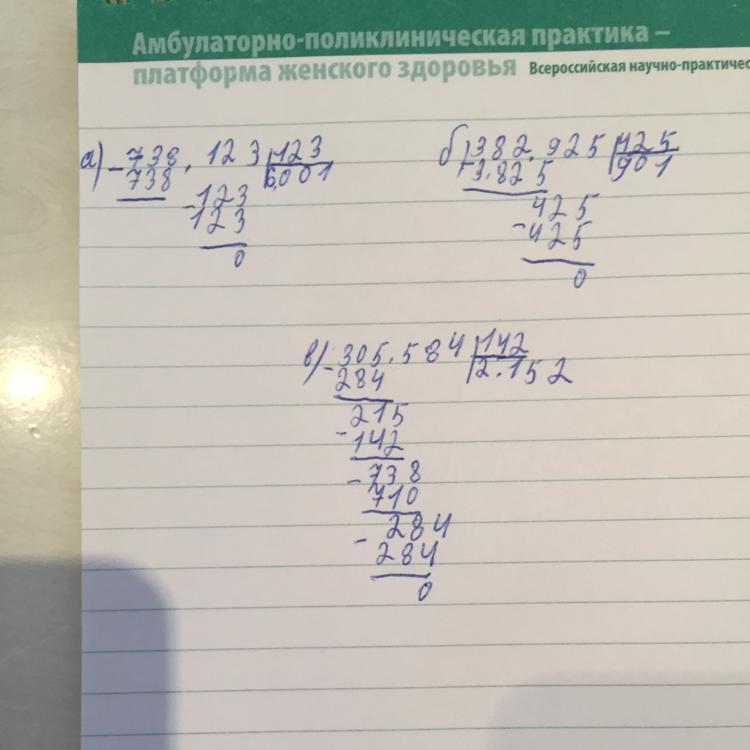 Амбулаторно-поликлиническая практика –
платформа женского здоровья Всероссийская научно-практичес
а) -738,123|123
738 6,001
-123
123
0
б) 382.925|425
-3.825 901
425
-425
0
в) -305.584|142
284 2.152
215
-142
-738
710
-284
284
0